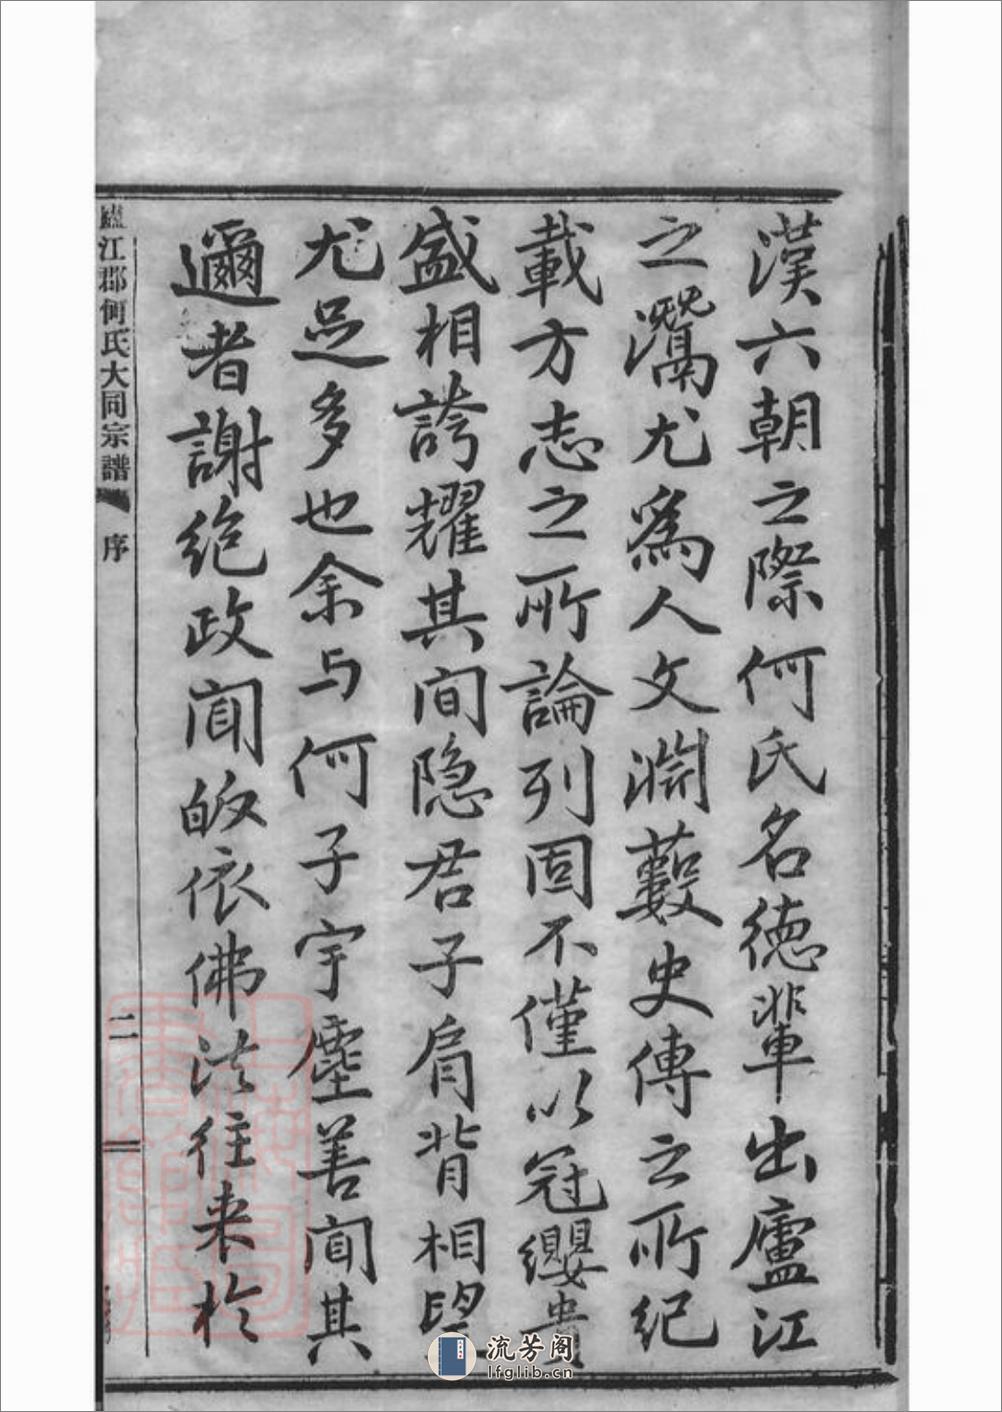 漢六朝之際何氏名德輩出廬江
之灊尤為人文淵藪史傳之所紀
載方志之所論列固不僅以冠纓貴
盛相誇耀其間隐君子肩背相望
尤足多也余与何子宇塵善聞其
邇者謝绝政聞皈依佛法往来於
廬江郡何氏大同宗譜
序
二
流芳阁
lfglib.cn